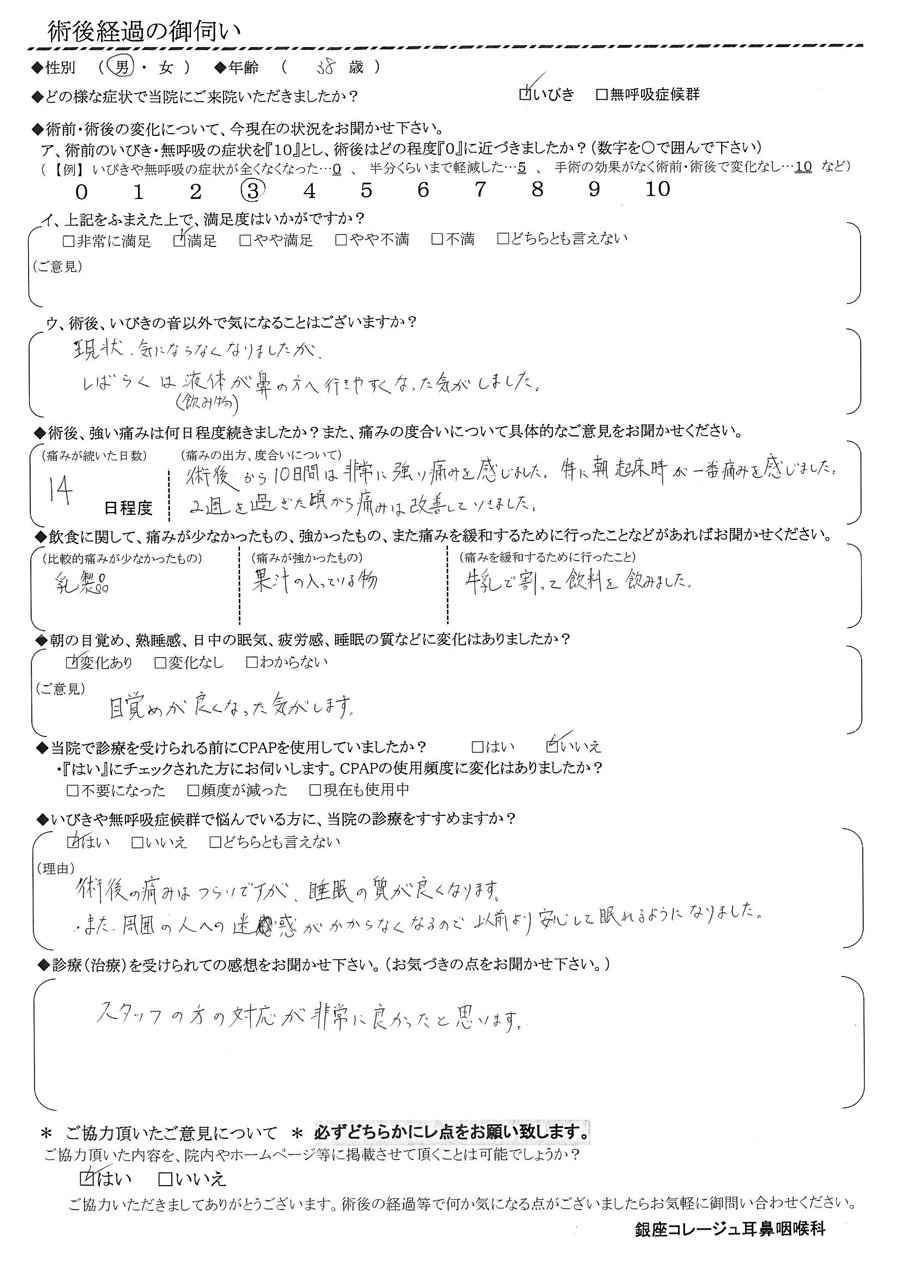 術後経過の御伺い
◆性別 ( 男 ・ 女 ) ◆年齢 ( 38 歳 )
◆どの様な症状で当院にご来院いただきましたか? ☑いびき □無呼吸症候群
◆術前・術後の変化について、今現在の状況をお聞かせ下さい。
ア、術前のいびき・無呼吸の症状を『10』とし、術後はどの程度『0』に近づきましたか?(数字を○で囲んで下さい)
(【例】いびきや無呼吸の症状が全くなくなった…0 、 半分くらいまで軽減した…5 、 手術の効果がなく術前・術後で変化なし…10 など)
0 1 2 ③ 4 5 6 7 8 9 10
イ、上記をふまえた上で、満足度はいかがですか?
□非常に満足 ☑満足 □やや満足 □やや不満 □不満 □どちらとも言えない
(ご意見)
ウ、術後、いびきの音以外で気になることはございますか?
現状、気にならなくなりましたが、
しばらくは液体が鼻の方へ行きやすくなった気がしました。
(飲み物)
◆術後、強い痛みは何日程度続きましたか?また、痛みの度合いについて具体的なご意見をお聞かせください。
(痛みが続いた日数) (痛みの出方、度合いについて)
術後から10日間は非常に強い痛みを感じました。特に朝起床時が一番痛みを感じました。
14 日程度 2週を過ぎた頃から痛みは改善していきました。
◆飲食に関して、痛みが少なかったもの、強かったもの、また痛みを緩和するために行ったことなどがあればお聞かせください。
(比較的痛みが少なかったもの) (痛みが強かったもの) (痛みを緩和するために行ったこと)
乳製品 果汁の入っている物 牛乳で割って飲料を飲みました。
◆朝の目覚め、熟睡感、日中の眠気、疲労感、睡眠の質などに変化はありましたか?
☑変化あり □変化なし □わからない
(ご意見)
目覚めが良くなった気がします。
◆当院で診療を受けられる前にCPAPを使用していましたか? □はい ☑いいえ
・『はい』にチェックされた方にお伺いします。CPAPの使用頻度に変化はありましたか?
□不要になった □頻度が減った □現在も使用中
◆いびきや無呼吸症候群で悩んでいる方に、当院の診療をすすめますか?
☑はい □いいえ □どちらとも言えない
(理由)
術後の痛みはつらいですが、睡眠の質が良くなります。
・また、周囲の人への迷惑がかからなくなるので以前より安心して眠れるようになりました。
◆診療(治療)を受けられての感想をお聞かせ下さい。(お気づきの点をお聞かせ下さい。)
スタッフの方の対応が非常に良かったと思います。
* ご協力頂いたご意見について * 必ずどちらかにレ点をお願い致します。
ご協力頂いた内容を、院内やホームページ等に掲載させて頂くことは可能でしょうか?
☑はい □いいえ
ご協力いただきましてありがとうございます。術後の経過等で何か気になる点がございましたらお気軽に御問い合わせください。
銀座コレージュ耳鼻咽喉科